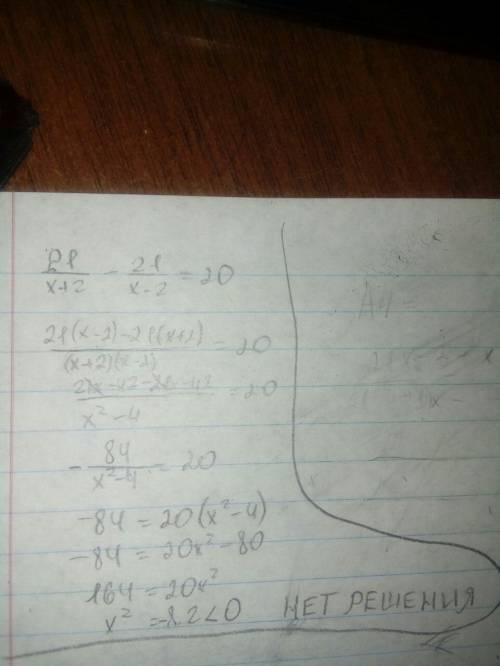 21/(x+2) - 21/(x-2) = 20
(21(x-2)-21(x+2))/((x+2)(x-2)) = 20
(21x-42-21x-42)/(x²-4) = 20
-84/(x²-4) = 20
-84 = 20(x²-4)
-84 = 20x²-80
164 = 20x²
x² = -8.2<0 НЕТ РЕШЕНИЯ